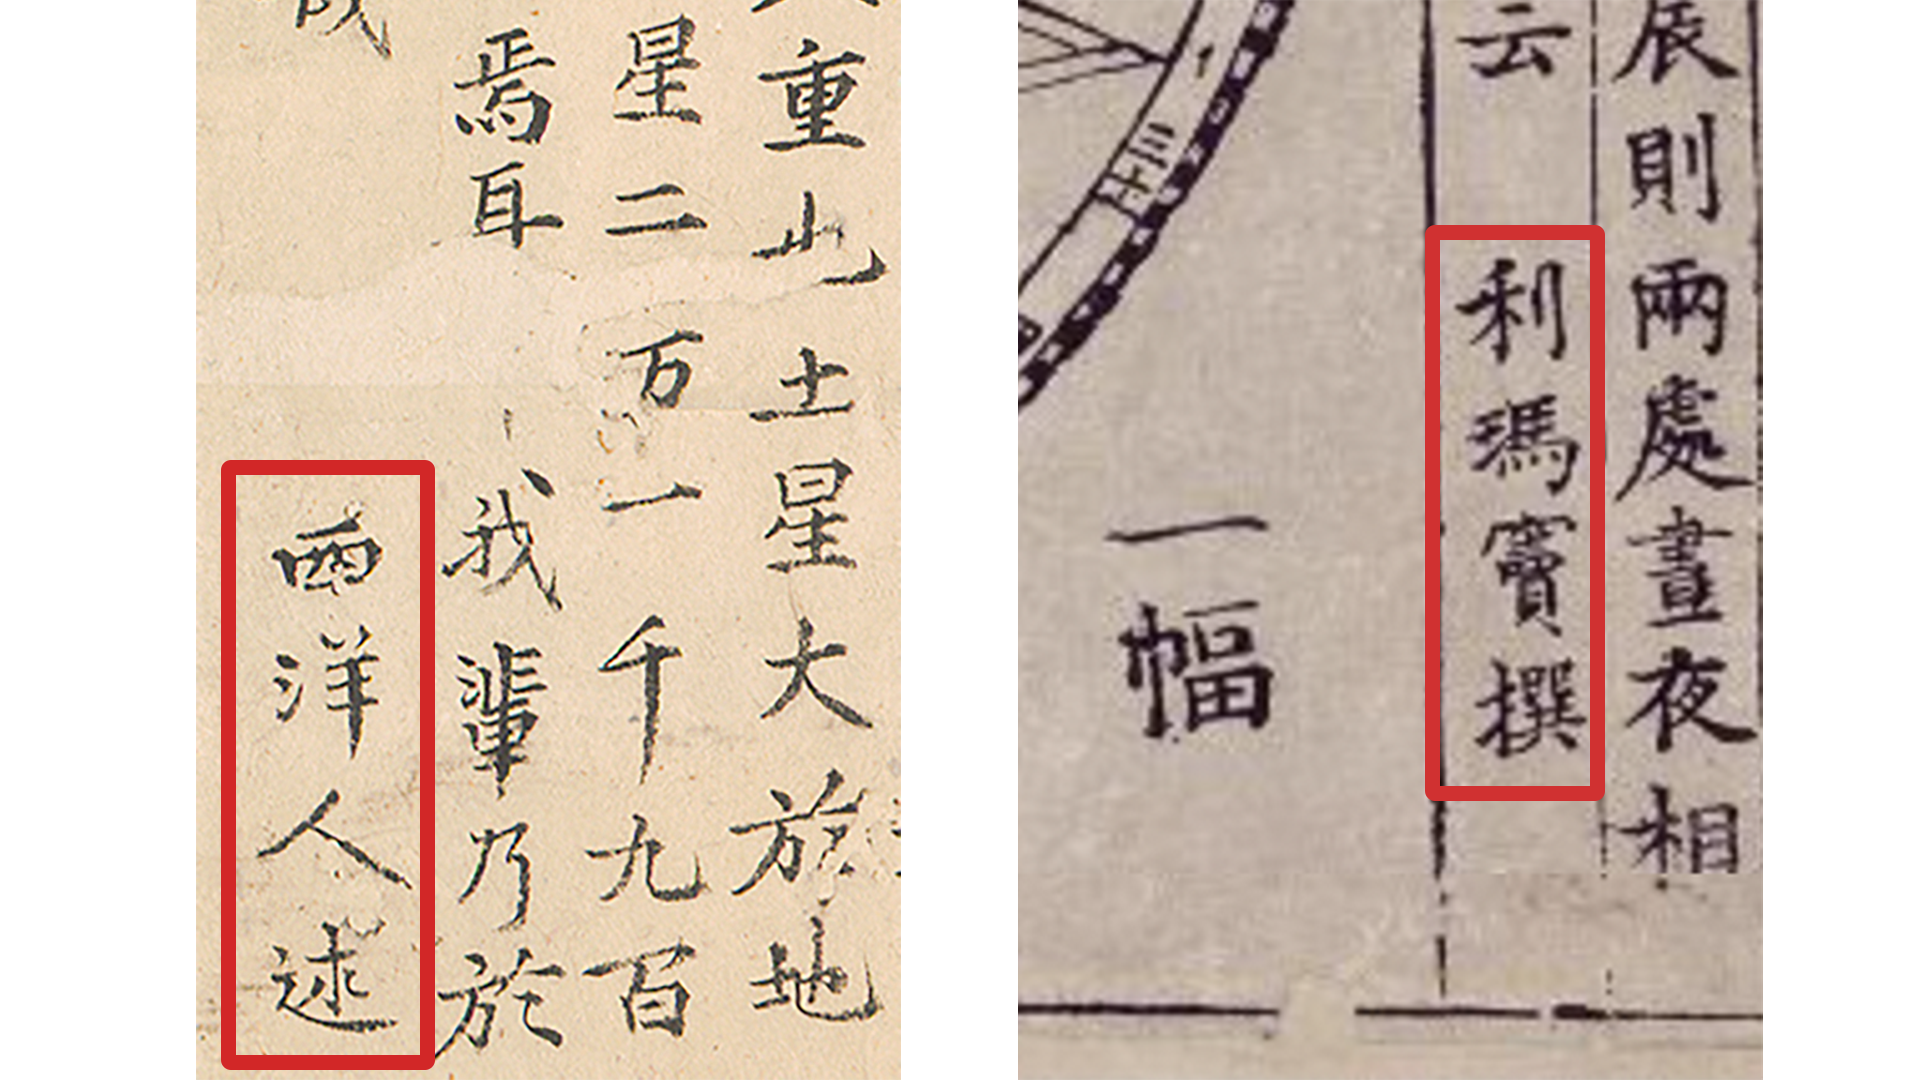 重此土星大於地
星二万一千九百
焉耳 我輩乃於
西洋人述
辰則兩處晝夜相
云 利瑪竇撰
一幅